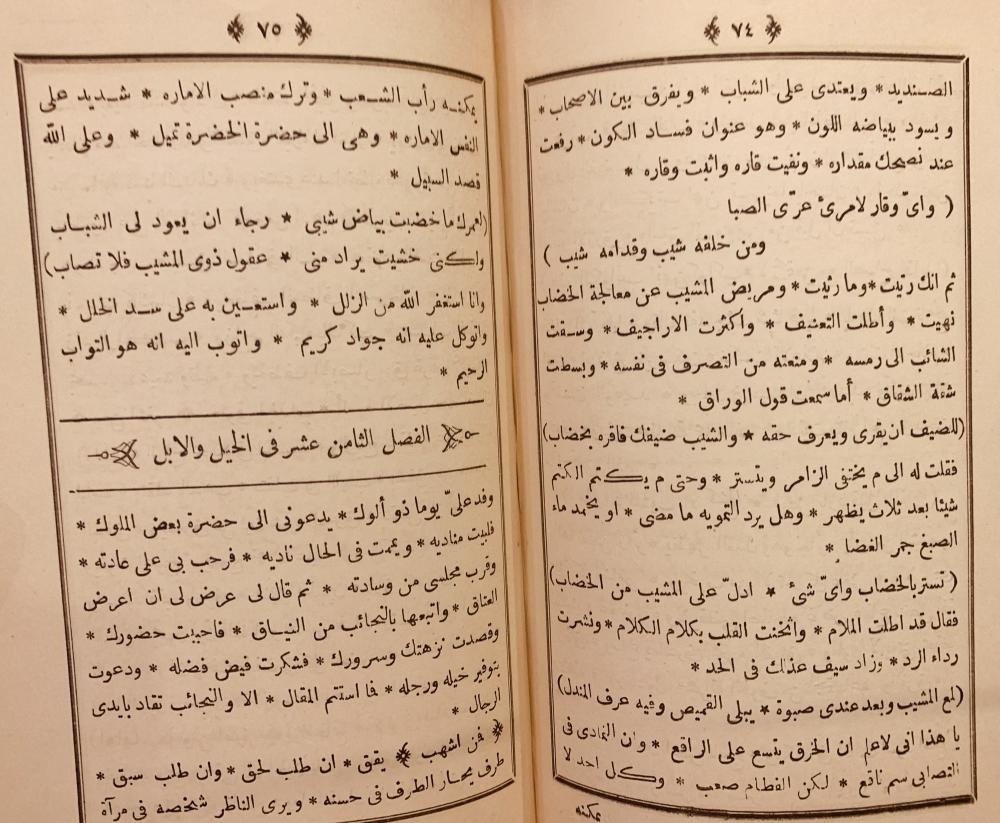 ٧٤
الصنديد * ويعتدى على الشباب * ويفرق بين الاصحاب *
ويسود ببياضه اللون * وهو عنوان فساد الكون * رفعت
عند نصحك مقداره * ونفيت قاره واثبت وقاره *
( واىّ وقار لامرئ عرّى الصبا
ومن خلفه شيب وقدامه شيب )
ثم انك رثيت * وما رثيت * ومريض المشيب عن معالجة الخضاب
نهيت * وأطلت التعنيف * واكثرت الاراجيف * وسقت
الشائب الى رمسه * ومنعته من التصرف فى نفسه * وبسطت
شقة الشقاق * أما سمعت قول الوراق *
(للضيف ان يقرى ويعرف حقه * والشيب ضيفك فاقره بخضاب)
فقلت له الى م يختفى الزامر ويتستر * وحتى م يكتم الكتم
شيئا بعد ثلاث يظهر * وهل يرد التمويه ما مضى * او يخمد ماء
الصبغ جمر الغضا *
( تستر بالخضاب واىّ شئ * ادلّ على المشيب من الخضاب)
فقال قد اطلت الملام * واثخنت القلب بكلام الكلام * ونشرت
رداء الرد * وزاد سيف عذلك فى الحد *
(لمع المشيب وبعد عندى صبوة * يبلى القميص وفيه عرف المندل)
يا هذا انى لاعلم ان الخرق يتسع على الراقع * وان التمادى فى
التصابى سم ناقع * لكن الفطام صعب * وكل احد لا
يمكنه
٧٥
يمكنه رأب الشعب * وترك منصب الاماره * شديد على
النفس الاماره * وهى الى حضرة الخضرة تميل * وعلى الله
قصد السبيل *
(لعمرك ما خضبت بياض شيبى * رجاء ان يعود لى الشباب
ولكنى خشيت يراد منى * عقول ذوى المشيب فلا تصاب)
وانا استغفر الله من الزلل * واستعين به على سد الخلل *
واتوكل عليه انه جواد كريم * واتوب اليه انه هو التواب
الرحيم *
الفصل الثامن عشر فى الخيل والابل
وفد علىّ يوما ذو ألوك * يدعونى الى حضرة بعض الملوك *
فلبيت مناديه * ويممت فى الحال ناديه * فرحب بى على عادته *
وقرب مجلسى من وسادته * ثم قال لى عرض لى ان اعرض
العتاق * واتبعها بالنجائب من النياق * فاحببت حضورك *
وقصدت نزهتك وسرورك * فشكرت فيض فضله * ودعوت
بتوفير خيله ورجله * فا استتم المقال * الا والنجائب تقاد بايدى
الرجال *
فمن اشهب يقق * ان طلب لحق * وان طلب سبق *
طرف يحار الطرف فى حسنه * ويرى الناظر شخصه فى مرآة